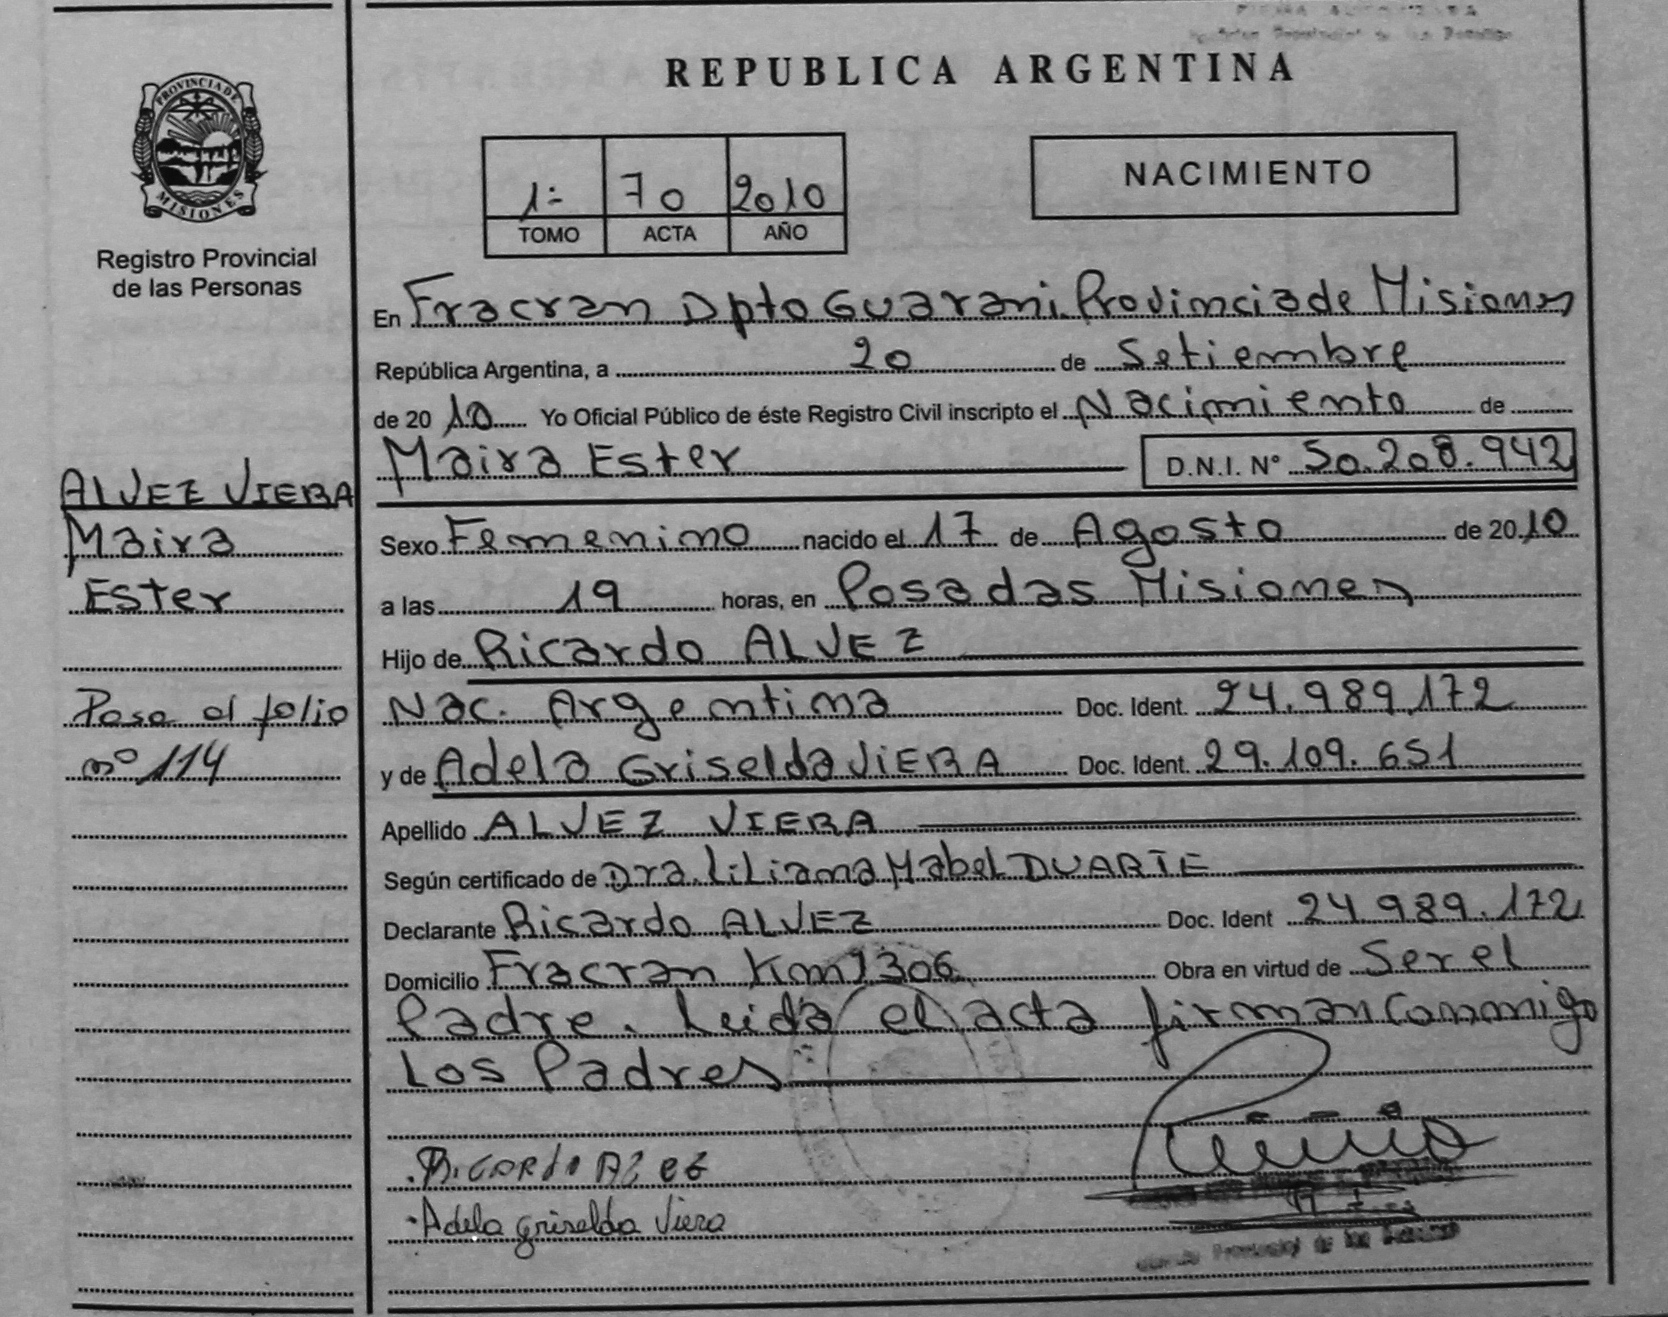 REPUBLICA ARGENTINA
PROVINCIA DE
MISIONES
Registro Provincial
de las Personas
1= 70 2010
TOMO ACTA AÑO
NACIMIENTO
En Fracran Dpto Guarani. Provincia de Misiones
República Argentina, a 20 de Setiembre
de 2010 Yo Oficial Público de éste Registro Civil inscripto el Nacimiento de
Maira Ester D.N.I. Nº 50.208.942
ALVEZ VIERA
Maira
Ester
Pasa al folio
nº 114
Sexo Femenino nacido el 17 de Agosto de 2010
a las 19 horas, en Posadas Misiones
Hijo de Ricardo ALVEZ
Nac. Argentina Doc. Ident. 24.989.172
y de Adela Griselda VIERA Doc. Ident. 29.109.651
Apellido ALVEZ VIERA
Según certificado de Dra. Liliana Mabel DUARTE
Declarante Ricardo ALVEZ Doc. Ident 24 989.172
Domicilio Fracran Km 1306 Obra en virtud de Ser el
Padre. Leida el acta firman Conmigo
Los Padres
Adela Griselda Viera